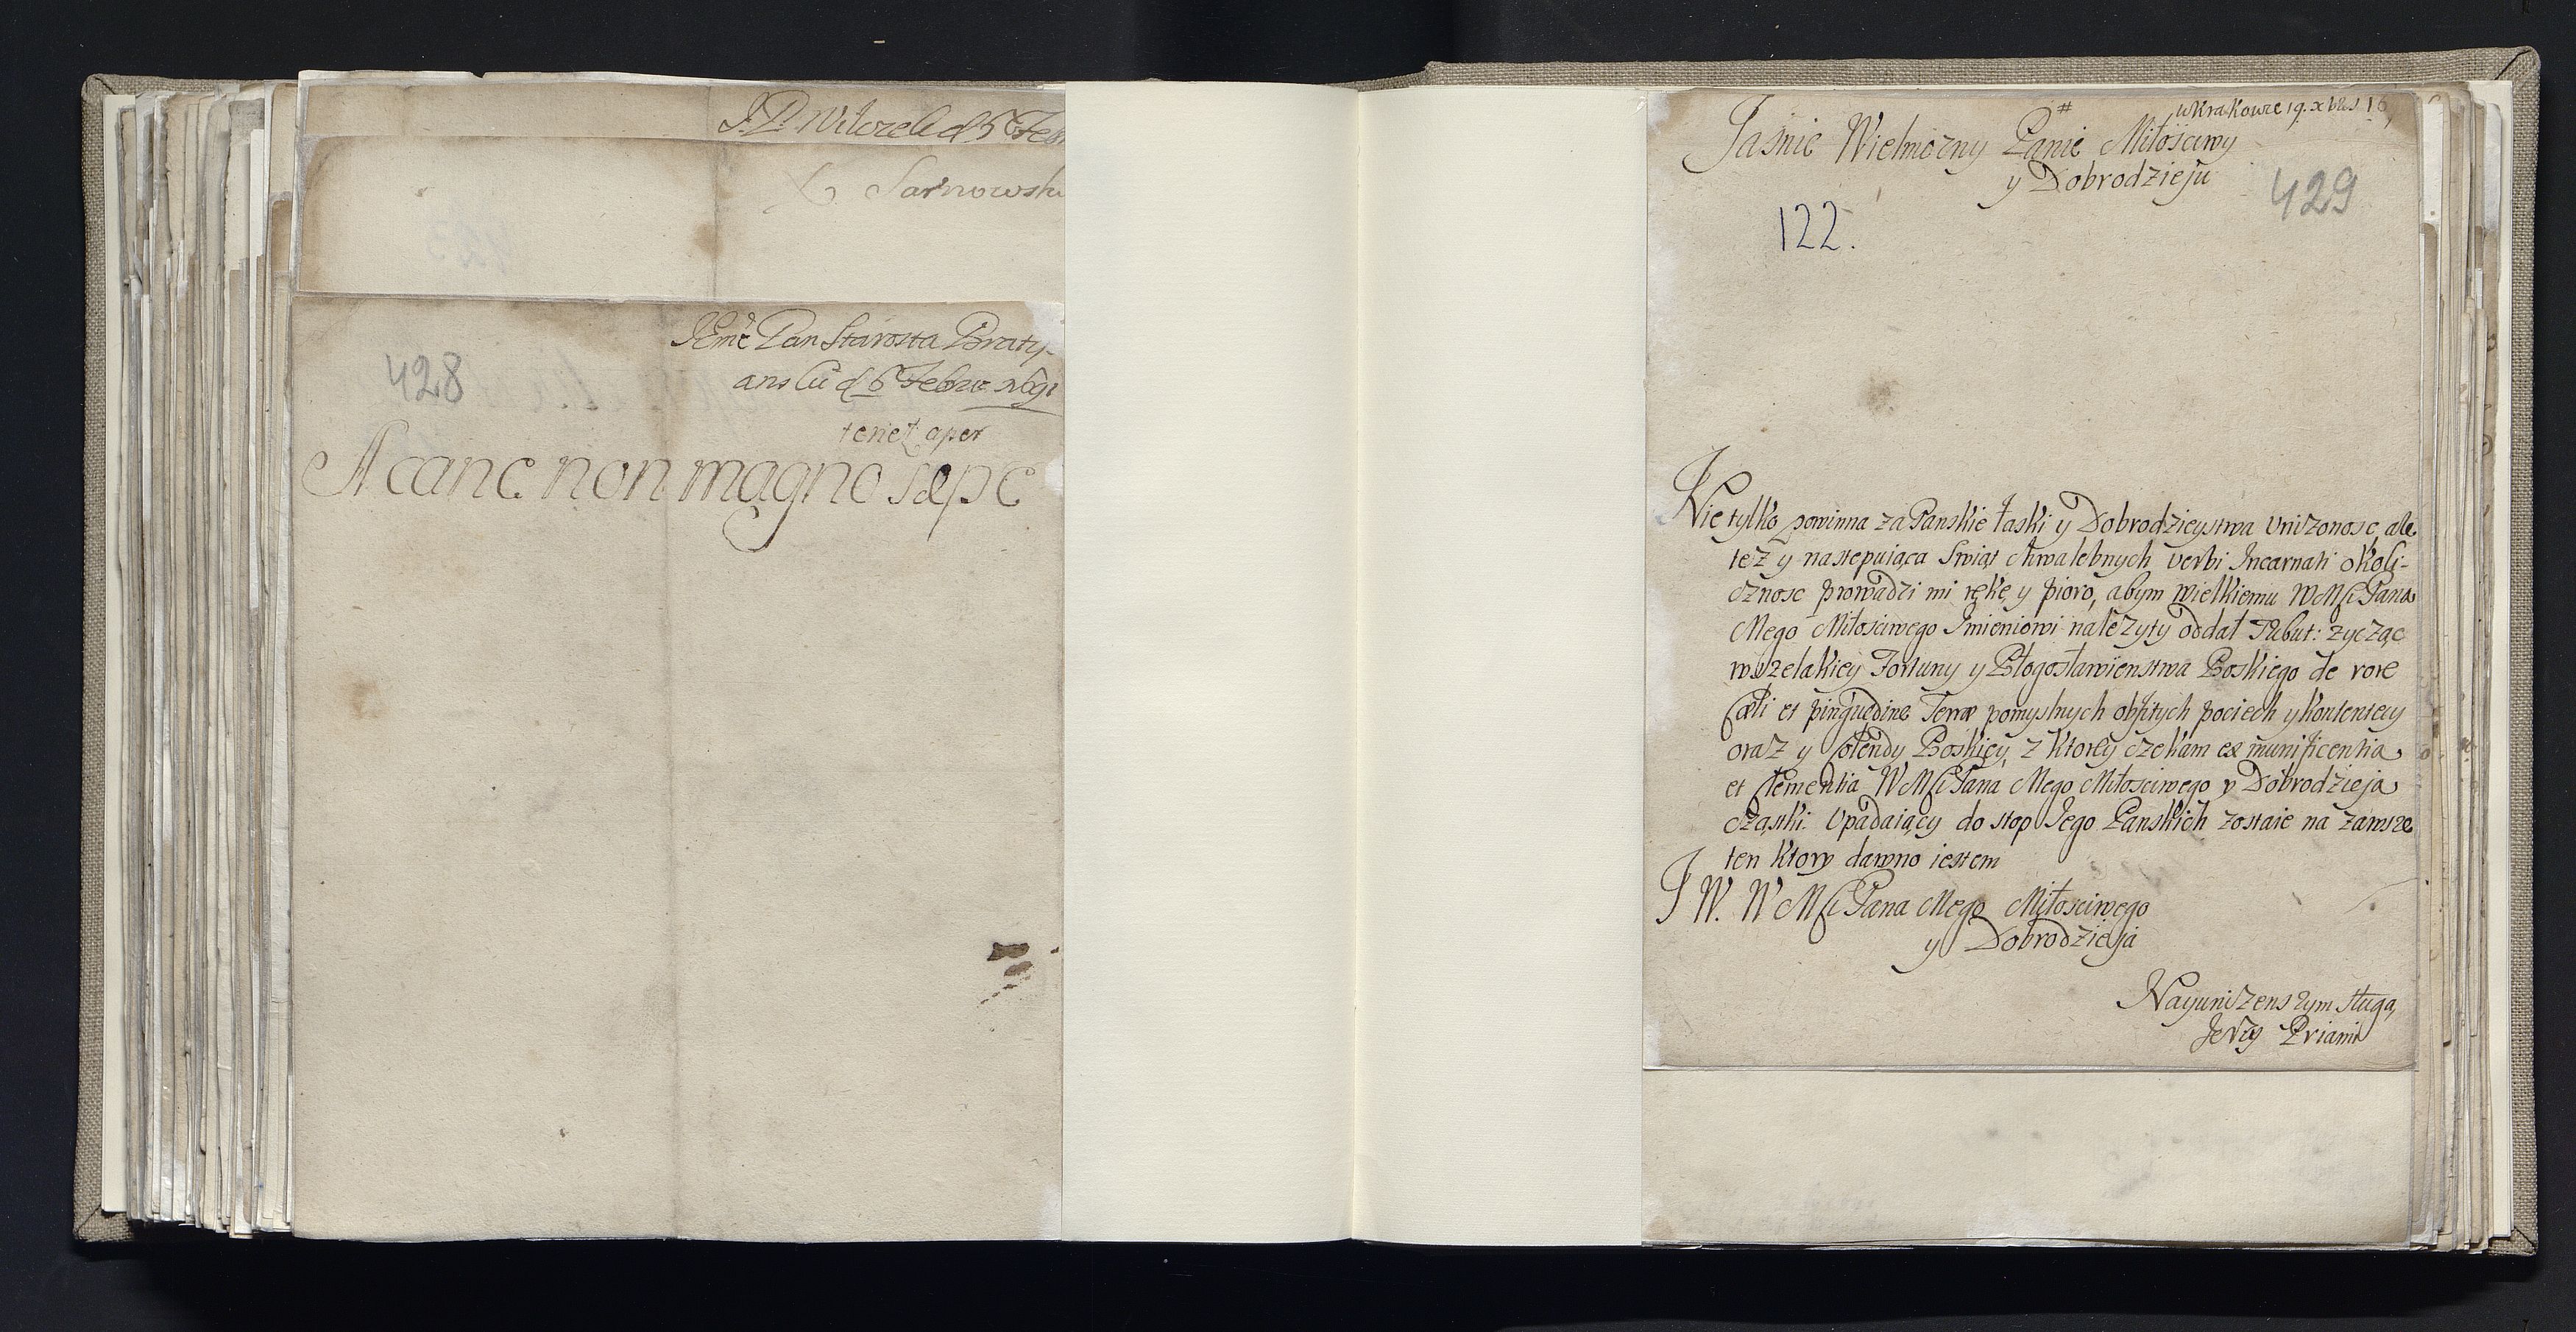 J. P. Wilczek d 6 Febr
X Sarnowski
428
JEmć Pan Starosta Braty-
ansLii d 6 Febru 1691
tenet aper
A cane non magno sæpe
w Krakowie 19. xbris 16
#
Jaśnie Wielmożny Panie Miłościwy
y Dobrodzieju
429
122.
Nie tylko powinna za Panskie łaski y Dobrodzieystwa Unizonosc, ale
tez y nastepuiąca Swiąt chwalebnych verbi Incarnati okoli-
cznosc prowadzi mi rękę y pioro, abym wielkiemu WMści Pana
Mego Miłosciwego Imieniowi nalezyty oddał Tribut: zycząc
wszelakiey Fortuny y Błogosławienstwa Boskiego de rore
Cæli et pinguedine Terræ pomyslnych obfitych pociech y kontentecy
oraz y Colendy Boskiey, z ktorey czekam ex munificentia
et Clementia WMści Pana Mego Miłosciwego y Dobrodzieja
cząstki. Upadaiący do stop Jego Panskich zostaie na zawsze
ten ktory dawno iestem
J W. WMści Pana Mego Miłosciwego
y Dobrodzieja
Nayunizenszym sługą,
Jerzy Priami